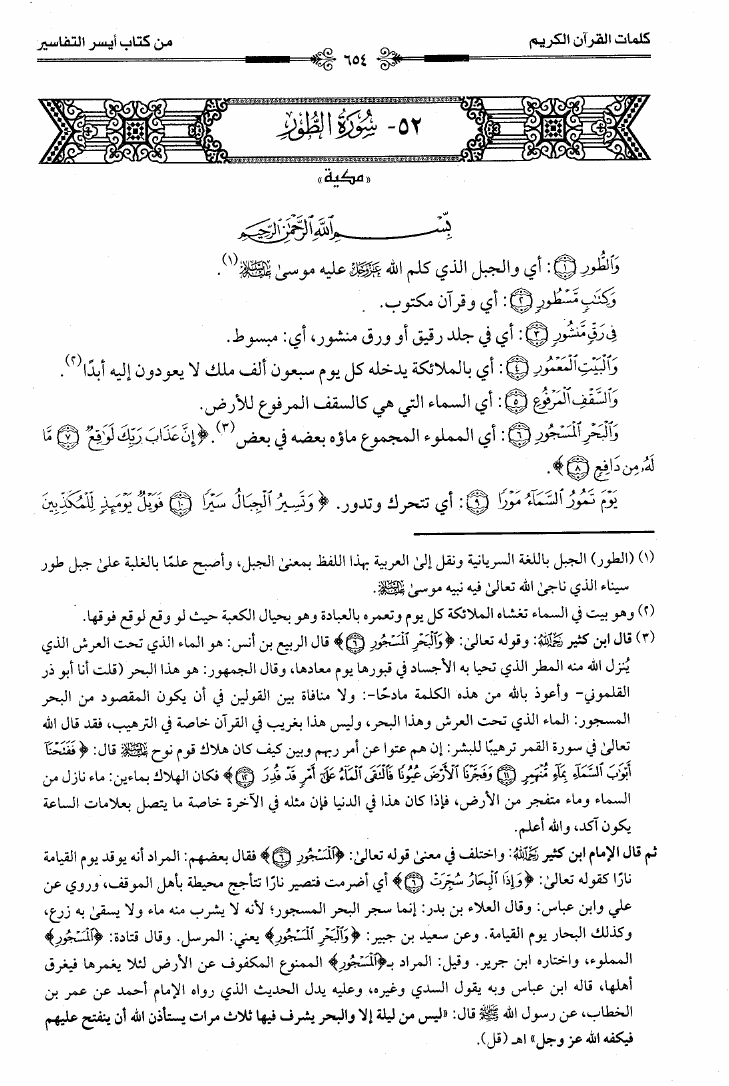 كلمات القرآن الكريم
من كتاب أيسر التفاسير
٦٥٤
٥٢- سُورَةُ الطُّورِ
«مكية»
بِسْمِ اللَّهِ الرَّحْمَٰنِ الرَّحِيمِ
وَالطُّورِ ﴿١﴾: أي والجبل الذي كلم الله عز وجل عليه موسى عليه السلام(١).
وَكِتَابٍ مَّسْطُورٍ ﴿٢﴾: أي وقرآن مكتوب.
فِي رَقٍّ مَّنشُورٍ ﴿٣﴾: أي في جلد رقيق أو ورق منشور، أي: مبسوط.
وَالْبَيْتِ الْمَعْمُورِ ﴿٤﴾: أي بالملائكة يدخله كل يوم سبعون ألف ملك لا يعودون إليه أبدًا(٢).
وَالسَّقْفِ الْمَرْفُوعِ ﴿٥﴾: أي السماء التي هي كالسقف المرفوع للأرض.
وَالْبَحْرِ الْمَسْجُورِ ﴿٦﴾: أي المملوء المجموع ماؤه بعضه في بعض(٣). ﴿إِنَّ عَذَابَ رَبِّكَ لَوَاقِعٌ ﴿٧﴾ مَّا
لَهُ مِن دَافِعٍ ﴿٨﴾﴾.
يَوْمَ تَمُورُ السَّمَاءُ مَوْرًا ﴿٩﴾: أي تتحرك وتدور. ﴿وَتَسِيرُ الْجِبَالُ سَيْرًا ﴿١٠﴾ فَوَيْلٌ يَوْمَئِذٍ لِّلْمُكَذِّبِينَ
(١) (الطور) الجبل باللغة السريانية ونقل إلى العربية بهذا اللفظ بمعنى الجبل، وأصبح علمًا بالغلبة على جبل طور
سيناء الذي ناجى الله تعالى فيه نبيه موسى عليه السلام.
(٢) وهو بيت في السماء تغشاه الملائكة كل يوم وتعمره بالعبادة وهو بحيال الكعبة حيث لو وقع لوقع فوقها.
(٣) قال ابن كثير رحمه الله: وقوله تعالى: ﴿وَالْبَحْرِ الْمَسْجُورِ ﴿٦﴾﴾ قال الربيع بن أنس: هو الماء الذي تحت العرش الذي
يُنزل الله منه المطر الذي تحيا به الأجساد في قبورها يوم معادها، وقال الجمهور: هو هذا البحر (قلت أنا أبو ذر
القلموني- وأعوذ بالله من هذه الكلمة مادحًا-: ولا منافاة بين القولين في أن يكون المقصود من البحر
المسجور: الماء الذي تحت العرش وهذا البحر، وليس هذا بغريب في القرآن خاصة في الترهيب، فقد قال الله
تعالى في سورة القمر ترهيبًا للبشر: إن هم عتوا عن أمر ربهم وبين كيف كان هلاك قوم نوح عليه السلام قال: ﴿فَفَتَحْنَا
أَبْوَابَ السَّمَاءِ بِمَاءٍ مُّنْهَمِرٍ ﴿١١﴾ وَفَجَّرْنَا الْأَرْضَ عُيُونًا فَالْتَقَى الْمَاءُ عَلَىٰ أَمْرٍ قَدْ قُدِرَ ﴿١٢﴾﴾ فكان الهلاك بماءين: ماء نازل من
السماء وماء متفجر من الأرض، فإذا كان هذا في الدنيا فإن مثله في الآخرة خاصة ما يتصل بعلامات الساعة
يكون آكد، والله أعلم.
ثم قال الإمام ابن كثير رحمه الله: واختلف في معنى قوله تعالى: ﴿الْمَسْجُورِ ﴿٦﴾﴾ فقال بعضهم: المراد أنه يوقد يوم القيامة
نارًا كقوله تعالى: ﴿وَإِذَا الْبِحَارُ سُجِّرَتْ ﴿٦﴾﴾ أي أضرمت فتصير نارًا تتأجج محيطة بأهل الموقف، وروي عن
علي وابن عباس: وقال العلاء بن بدر: إنما سجر البحر المسجور؛ لأنه لا يشرب منه ماء ولا يسقى به زرع،
وكذلك البحار يوم القيامة. وعن سعيد بن جبير: ﴿وَالْبَحْرِ الْمَسْجُورِ﴾ يعني: المرسل. وقال قتادة: ﴿الْمَسْجُورِ﴾
المملوء، واختاره ابن جرير. وقيل: المراد بـ﴿الْمَسْجُورِ﴾ الممنوع المكفوف عن الأرض لئلا يغمرها فيغرق
أهلها، قاله ابن عباس وبه يقول السدي وغيره، وعليه يدل الحديث الذي رواه الإمام أحمد عن عمر بن
الخطاب، عن رسول الله ﷺ قال: «ليس من ليلة إلا والبحر يشرف فيها ثلاث مرات يستأذن الله أن ينفتح عليهم
فيكفه الله عز وجل» اهـ (قل).